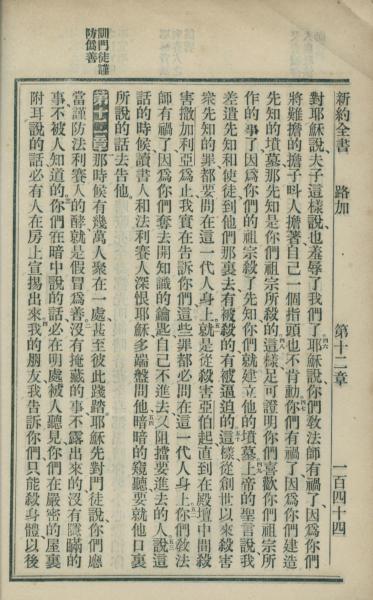 新約全書 路加 第十二章 一百四十四
對耶穌說夫子這樣說也羞辱了我們了耶穌說你們敎法師有禍了因爲你們
將難擔的擔子呌人擔著自己一個指頭也不肯動你們有禍了因爲你們建造
先知的墳墓那先知是你們祖宗所殺的這樣足可證明你們喜歡你們祖宗所
作的事了因爲你們的祖宗殺了先知你們就建立他的墳墓上帝的聖言說我
差遣先知和使徒到他們那裏去有被殺的有被逼迫的這樣從創世以來殺害
衆先知的罪都要問在這一代人身上就是從殺害亞伯起直到在殿壇中間殺
害撒加利亞爲止我實在告訴你們這些罪都必問在這一代人身上你們敎法
師有禍了因爲你們奪去開知識的鑰匙自己不進去又阻擋要進去的人說這
話的時候讀書人和法利賽人深恨耶穌多端盤問他暗暗的窺聽要就他口裏
所說的話去告他
第十二章那時候有幾萬人聚在一處甚至彼此踐踏耶穌先對門徒說你們應
當謹防法利賽人的酵就是假冒爲善沒有掩藏的事不露出來的沒有隱瞞的
事不被人知道的你們在暗中說的話必在明處被人聽見你們在嚴密的屋裏
附耳說的話必有人在房上宣揚出來我的朋友我告訴你們只能殺身體以後
訓門徒謹
防僞善